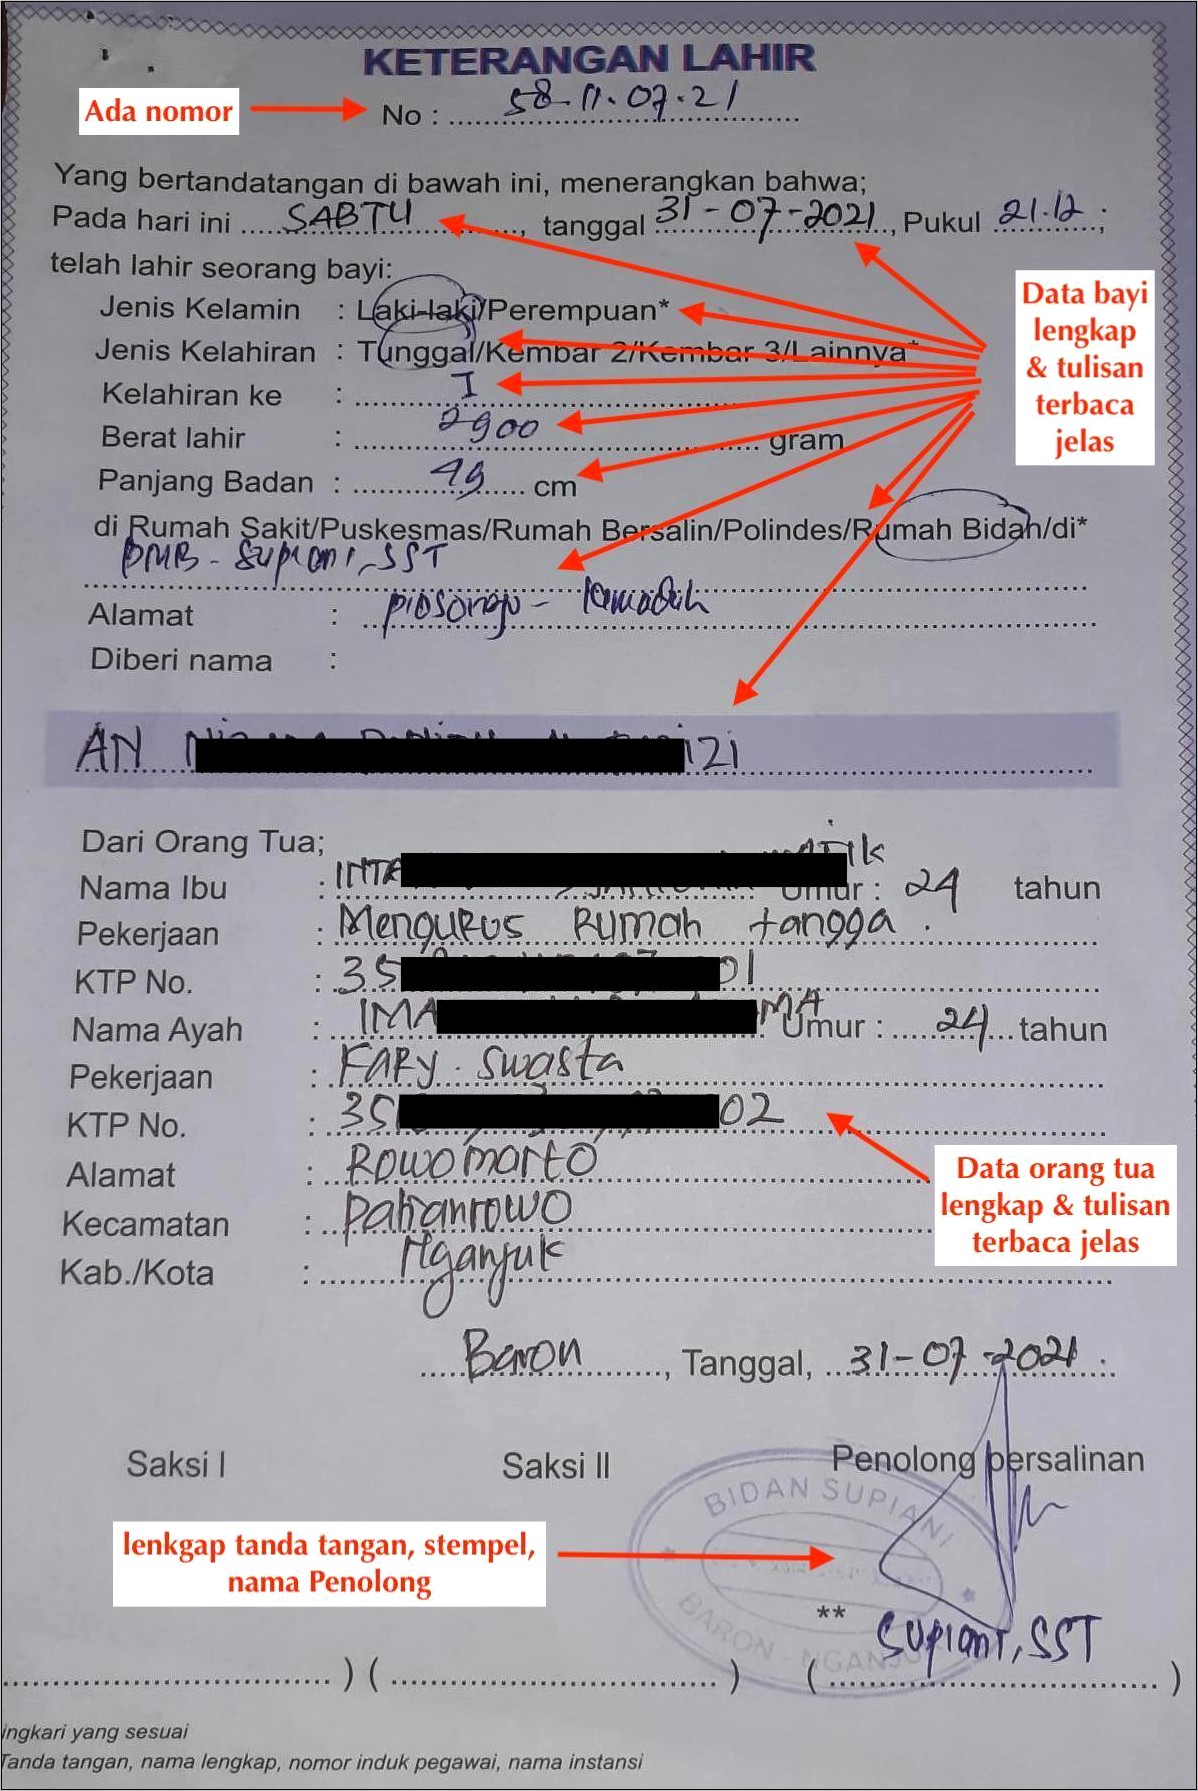 KETERANGAN LAHIR
Ada nomor
No : 58-11.07.21
Yang bertandatangan di bawah ini, menerangkan bahwa;
Pada hari ini SABTU, tanggal 31-07-2021, Pukul 21.12;
telah lahir seorang bayi:
Jenis Kelamin : Laki-laki/Perempuan*
Jenis Kelahiran : Tunggal/Kembar 2/Kembar 3/Lainnya*
Kelahiran ke : I
Berat lahir : 2900 gram
Panjang Badan : 49 cm
di Rumah Sakit/Puskesmas/Rumah Bersalin/Polindes/Rumah Bidan/di*
PMB - Supiani, SST
Alamat :
Diberi nama :
Data bayi
lengkap
& tulisan
terbaca
jelas
AN
Dari Orang Tua;
Nama Ibu : Umur : 24 tahun
Pekerjaan : Mengurus Rumah tangga.
KTP No. : 35 01
Nama Ayah : IMA MA Umur : 24 tahun
Pekerjaan : KARY. Swasta
KTP No. : 35 02
Alamat : Rowomarto
Kecamatan : Patianrowo
Kab./Kota : Nganjuk
Data orang tua
lengkap & tulisan
terbaca jelas
Baron, Tanggal, 31-07-2021.
Saksi I Saksi II Penolong persalinan
BIDAN SUPIANI
lenkgap tanda tangan, stempel,
nama Penolong
**
BARON - NGANJUK
Supiani, SST
) ( ) ( )
ingkari yang sesuai
Tanda tangan, nama lengkap, nomor induk pegawai, nama instansi